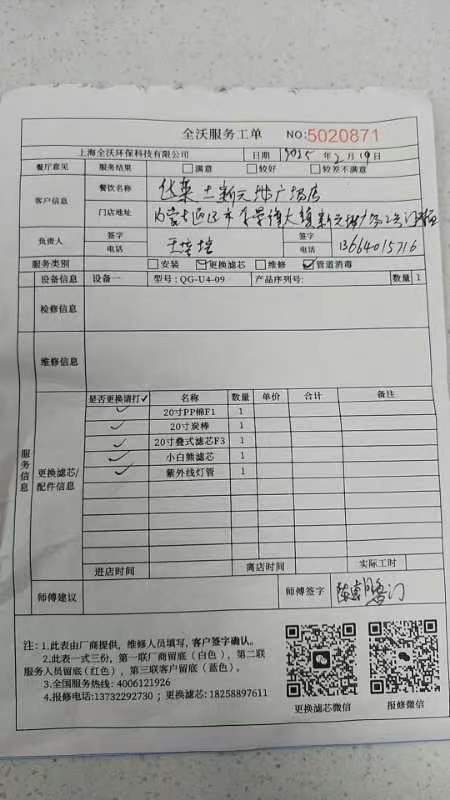 全沃服务工单 NO:5020871
上海全沃环保科技有限公司 日期 2025年2月19日
餐厅意见 服务结果 □满意 □较好 □较差不满意
客户信息 餐饮名称 新天地广场店
门店地址 内蒙
负责人 签字 签字
电话 电话 13664015716
服务类别 □安装 ☑更换滤芯 □维修 ☑管道消毒
设备信息 设备一 型号: QG-U4-09 产品序列号: 数量 1
检修信息
维修信息
服务信息
更换滤芯/配件信息
是否更换请打✓ 名称 数量 单价 合计 备注
✓ 20寸PP棉F1 1
✓ 20寸炭棒 1
✓ 20寸叠式滤芯F3 1
✓ 小白熊滤芯 1
✓ 紫外线灯管 1
进店时间 离店时间 实际工时
师傅建议 师傅签字
注: 1.此表由厂商提供, 维修人员填写, 客户签字确认。
2.此表一式三份, 第一联厂商留底(白色), 第二联
服务人员留底(红色), 第三联客户留底(蓝色)。
3.全国服务热线: 4006121926
4.报修电话:13732292730 ; 更换滤芯: 18258897611
更换滤芯微信 报修微信